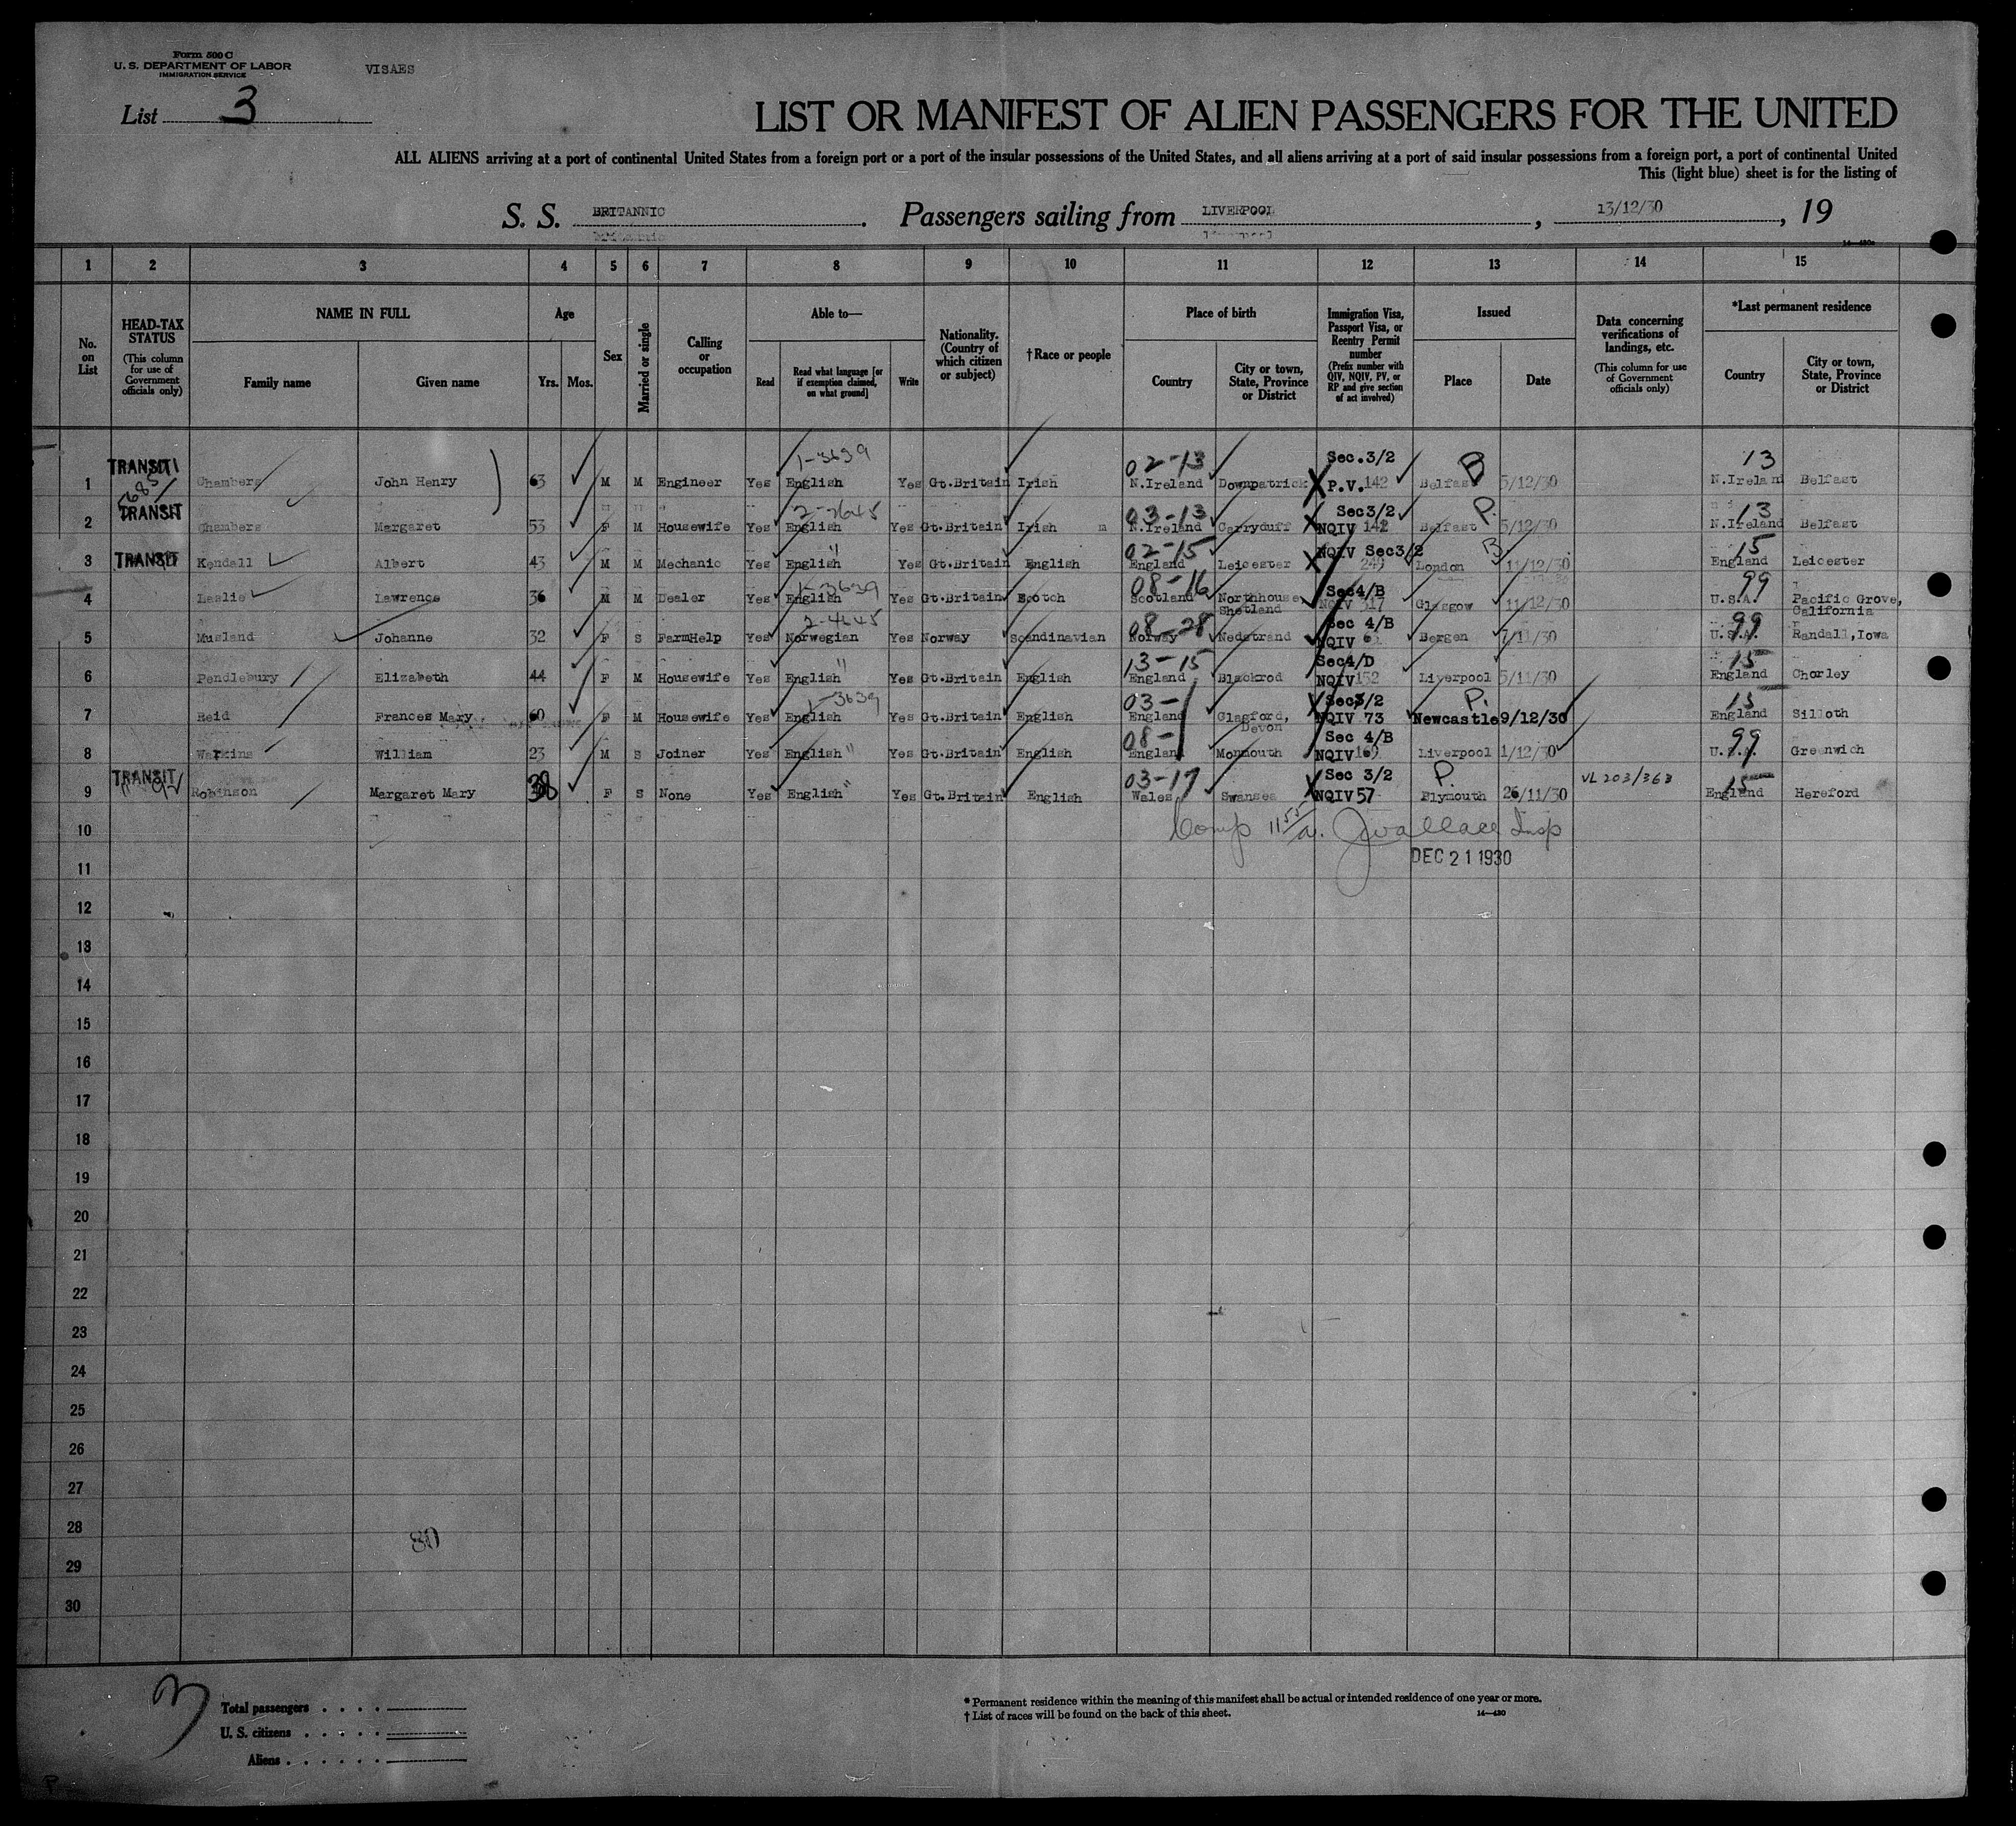 Form 500 C
U. S. DEPARTMENT OF LABOR
IMMIGRATION SERVICE
VISAES
List 3
LIST OR MANIFEST OF ALIEN PASSENGERS FOR THE UNITED
ALL ALIENS arriving at a port of continental United States from a foreign port or a port of the insular possessions of the United States, and all aliens arriving at a port of said insular possessions from a foreign port, a port of continental United
This (light blue) sheet is for the listing of
S. S. BRITANNIC. Passengers sailing from LIVERPOOL, 13/12/30, 19
1 2 3 4 5 6 7 8 9 10 11 12 13 14 15
No. on List
HEAD-TAX STATUS (This column for use of Government officials only)
NAME IN FULL Family name Given name
Age Yrs. Mos.
Sex
Married or single
Calling or occupation
Able to— Read Read what language [or if exemption claimed, on what ground] Write
Nationality. (Country of which citizen or subject)
†Race or people
Place of birth Country City or town, State, Province or District
Immigration Visa, Passport Visa, or Reentry Permit number (Prefix number with QIV, NQIV, PV, or RP and give section of act involved)
Issued Place Date
Data concerning verifications of landings, etc. (This column for use of Government officials only)
*Last permanent residence Country City or town, State, Province or District
TRANSIT 1-3639 02-13 Sec.3/2 B 13
1 Chambers John Henry 63 M M Engineer Yes English Yes Gt.Britain Irish N.Ireland Downpatrick P.V. 142 Belfast 5/12/30 N.Ireland Belfast
TRANSIT 2-3645 03-13 Sec3/2 P. 13
2 Chambers Margaret 53 F M Housewife Yes English Yes Gt.Britain Irish N.Ireland Carryduff NQIV 142 Belfast 5/12/30 N.Ireland Belfast
02-15 NQIV Sec3/2 B 15
3 TRANSIT Kendall Albert 43 M M Mechanic Yes English " Yes Gt.Britain English England Leicester 249 London 11/12/30 England Leicester
1-3639 08-16 Sec4/B 99
4 Leslie Lawrence 36 M M Dealer Yes English Yes Gt.Britain Scotch Scotland Northhouse, Shetland NQIV 317 Glasgow 11/12/30 U.S.A. Pacific Grove, California
2-4645 08-28 Sec 4/B 99
5 Musland Johanne 32 F S FarmHelp Yes Norwegian Yes Norway Scandinavian Norway Nedstrand NQIV Bergen 7/11/30 U.S.A. Randall, Iowa
13-15 Sec4/D 15
6 Pendlebury Elizabeth 44 F M Housewife Yes English " Yes Gt.Britain English England Blackrod NQIV 152 Liverpool 5/11/30 England Chorley
1-3639 03- Sec3/2 P. 15
7 Reid Frances Mary 60 F M Housewife Yes English Yes Gt.Britain English England Glasford, Devon NQIV 73 Newcastle 9/12/30 England Silloth
08- Sec 4/B 99
8 Watkins William 23 M S Joiner Yes English " Yes Gt.Britain English England Monmouth NQIV 169 Liverpool 1/12/30 U.S.A. Greenwich
TRANSIT 03-17 Sec 3/2 P. VL 203/363 15
9 Robinson Margaret Mary 38 F S None Yes English " Yes Gt.Britain English Wales Swansea NQIV 57 Plymouth 26/11/30 England Hereford
10 Comp 11 55/a. J Wallace Insp
11 DEC 21 1930
12
13
14
15
16
17
18
19
20
21
22
23
24
25
26
27
28 80
29
30
Total passengers
U. S. citizens
Aliens
3
* Permanent residence within the meaning of this manifest shall be actual or intended residence of one year or more.
† List of races will be found on the back of this sheet.
14—430